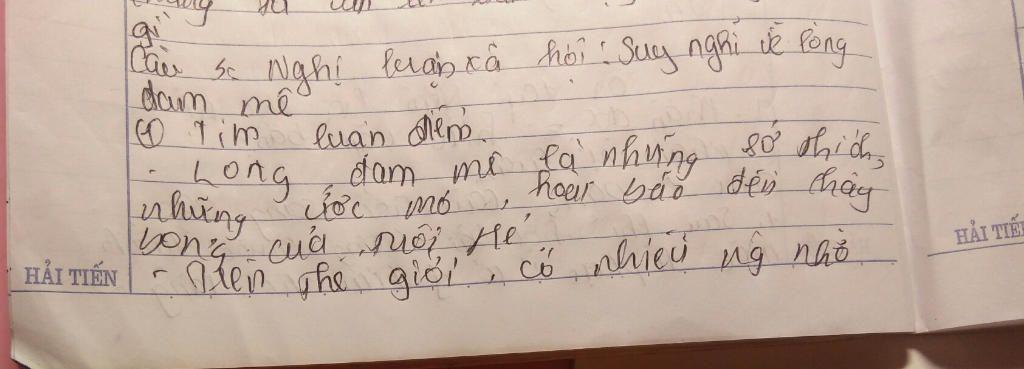 gì
Câu 5c Nghị luận xã hội: Suy nghĩ về lòng
đam mê
① Tìm luận điểm
- Lòng đam mê là những sở thích,
những ước mơ, hoài bão đến cháy
bỏng của tuổi trẻ
- Trên thế giới, có nhiều ng nhờ
HẢI TIẾN
HẢI TIẾ